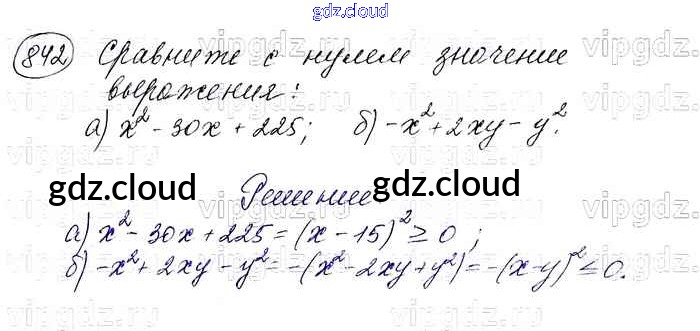 gdz.cloud
842 Сравните с нулем значение
выражения:
а) x² - 30x + 225; б) -x² + 2xy - y².
gdz.cloud Решение gdz.cloud
а) x² - 30x + 225 = (x - 15)² ≥ 0 ;
б) -x² + 2xy - y² = -(x² - 2xy + y²) = -(x - y)² ≤ 0.